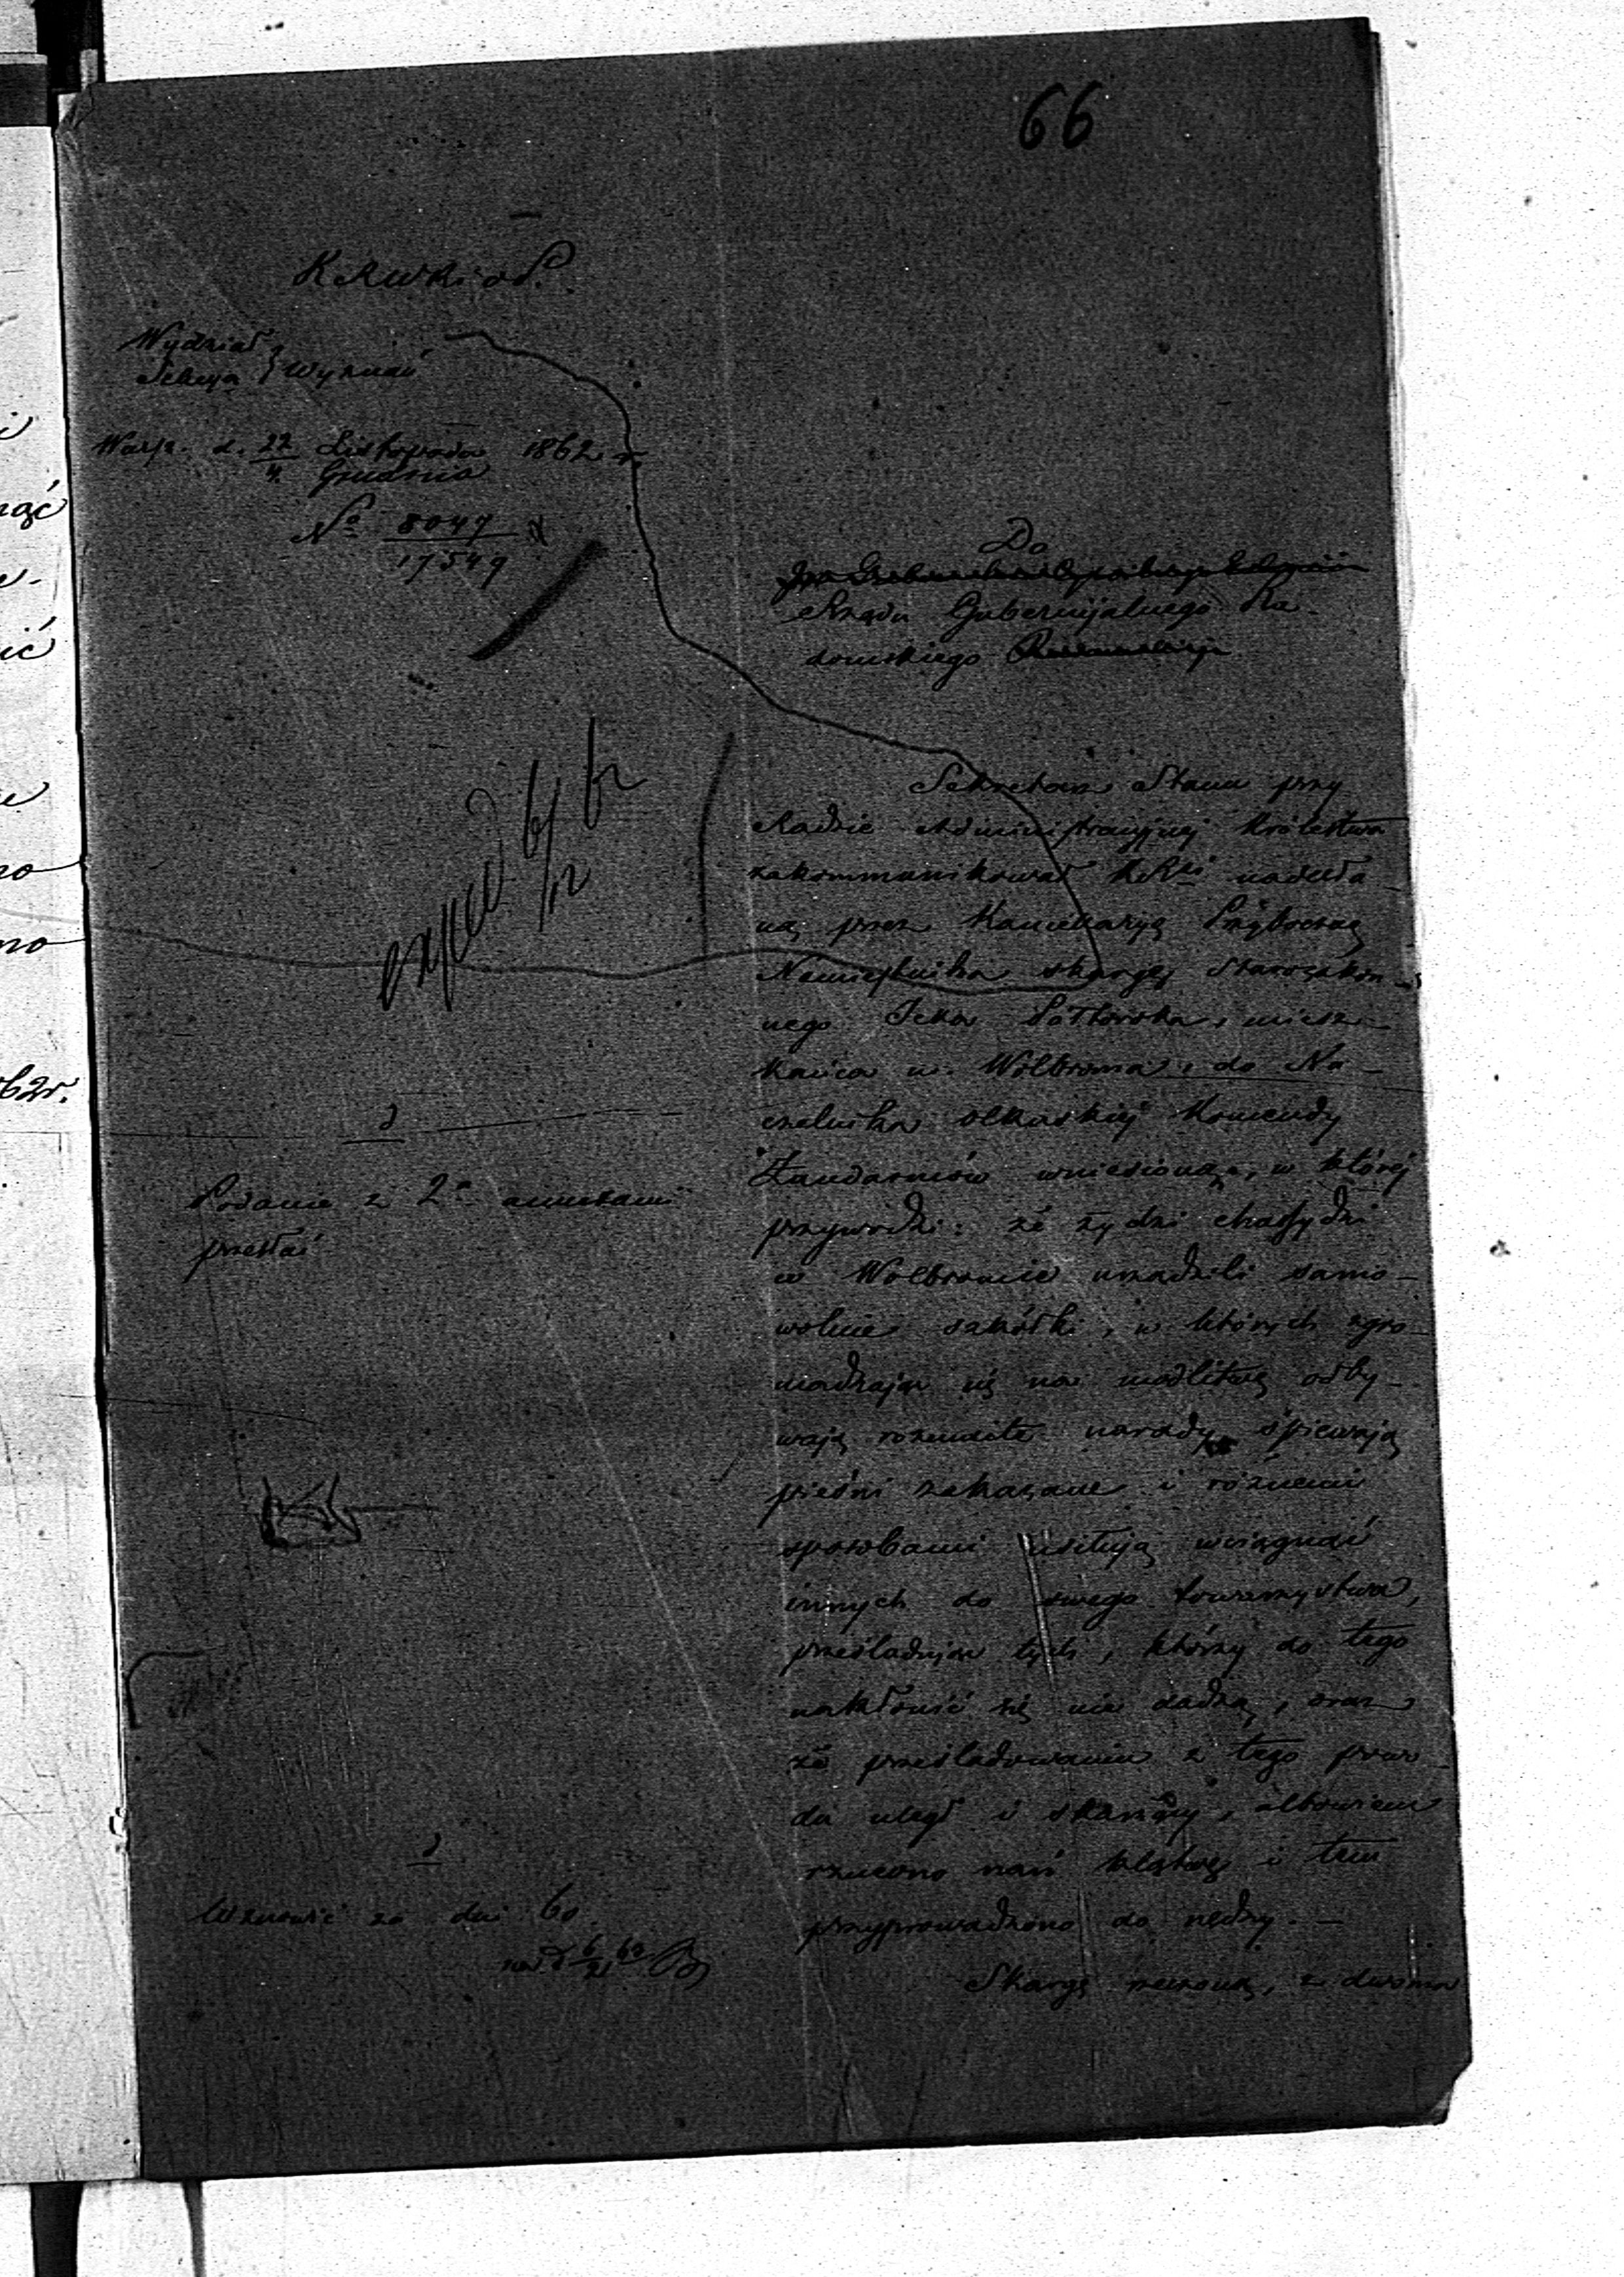 66
KRWRiOP.
Wydział
Sekcya } Wyznań
Warsz. d. 22 Listopada 1862 r.
4 Grudnia
No 8047
17549
Do
Rządu Gubernijalnego Ra-
domskiego
exped 6/12 62
Sekretarz Stanu przy
Radzie Administracyjnej Królestwa
zakommunikował KRki nadesła-
ną przez Kancellaryą Przyboczną
Namiestnika skargę Starozakon-
nego Icka Półtoraka, miesz-
kańca m. Wolbroma, do Na-
czelnika olkuskiej Komendy
Żandarmów wniesioną, w której
przywodzi: że żydzi chassydzi
w Wolbromie urządzili samo-
wolnie szkółki, w których zgro-
madzając się na modlitwę odby-
wają rozmaite narady, śpiewają
pieśni zakazane i różnemi
sposobami usiłują wciągnąć
innych do swego towarzystwa,
prześladując tych, którzy do tego
nakłonić się nie dadzą, oraz
że prześladowaniu z tego powo-
du uległ i skarżący, albowiem
rzucono nań klątwę i tem
przyprowadzono do nędzy. —
Skargę rzeczoną, z dwoma
Podanie z 2a annexami
przesłać
Wznowić za dni 60.